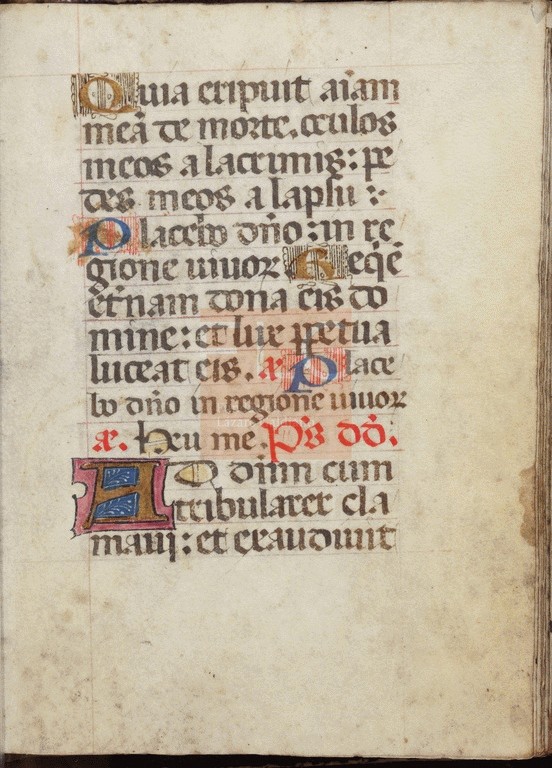 Quia eripuit aı̄am
meā de morte. oculos
meos a lacrimis: pe
des meos a lapsu :·
Placebo dn̄o: in re
gione uiuoꝝ Reqē
et̄nam dona eis do
mine: et lux ꝑpetua
luceat eis. ā. Place
bo dn̄o in regione uiuoꝝ
ā. Heu me. Ps dō.
AD dn̄m cum
tribularer cla
maui: et exaudiuit